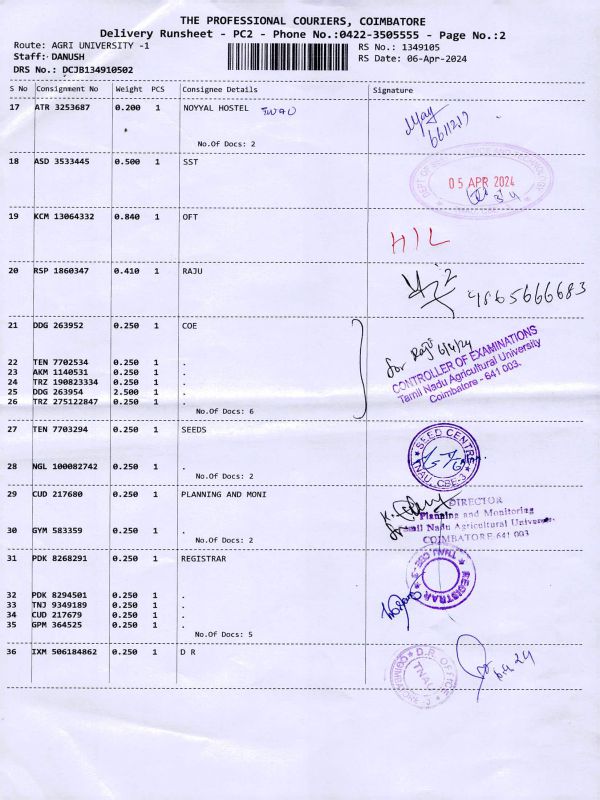 THE PROFESSIONAL COURIERS, COIMBATORE
Delivery Runsheet - PC2 - Phone No.:0422-3505555 - Page No.:2
Route: AGRI UNIVERSITY -1
RS No.: 1349105
Staff: DANUSH
RS Date: 06-Apr-2024
DRS No.: DCJB134910502
S No Consignment No Weight PCS Consignee Details Signature
17 ATR 3253687 0.200 1 NOYYAL HOSTEL TNAU
No.Of Docs: 2
18 ASD 3533445 0.500 1 SST
05 APR 2024
19 KCM 13064332 0.840 1 OFT
HIL
20 RSP 1860347 0.410 1 RAJU
9865666683
21 DDG 263952 0.250 1 COE
for Raju 6/4/24
CONTROLLER OF EXAMINATIONS
Tamil Nadu Agricultural University
Coimbatore - 641 003.
22 TEN 7702534 0.250 1 .
23 AKM 1140531 0.250 1 .
24 TRZ 190823334 0.250 1 .
25 DDG 263954 2.500 1 .
26 TRZ 275122847 0.250 1 .
No.Of Docs: 6
27 TEN 7703294 0.250 1 SEEDS
SEED CENTRE
TNAU, CBE-3
28 NGL 100082742 0.250 1 .
No.Of Docs: 2
29 CUD 217680 0.250 1 PLANNING AND MONI
DIRECTOR
Planning and Monitoring
Tamil Nadu Agricultural University
COIMBATORE 641 003
30 GYM 583359 0.250 1 .
No.Of Docs: 2
31 PDK 8268291 0.250 1 REGISTRAR
REGISTRAR
TNAU, CBE - 3
32 PDK 8294501 0.250 1 .
33 TNJ 9349189 0.250 1 .
34 CUD 217679 0.250 1 .
35 GPM 364525 0.250 1 .
No.Of Docs: 5
36 IXM 506184862 0.250 1 D R
D.R. OFFICE
TNAU
COIMBATORE-3